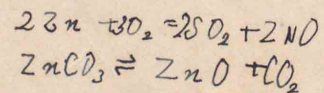 2Zn + 3O₂ = 2SO₂ + ZNO
ZnCO₃ ⇌ ZnO + CO₂